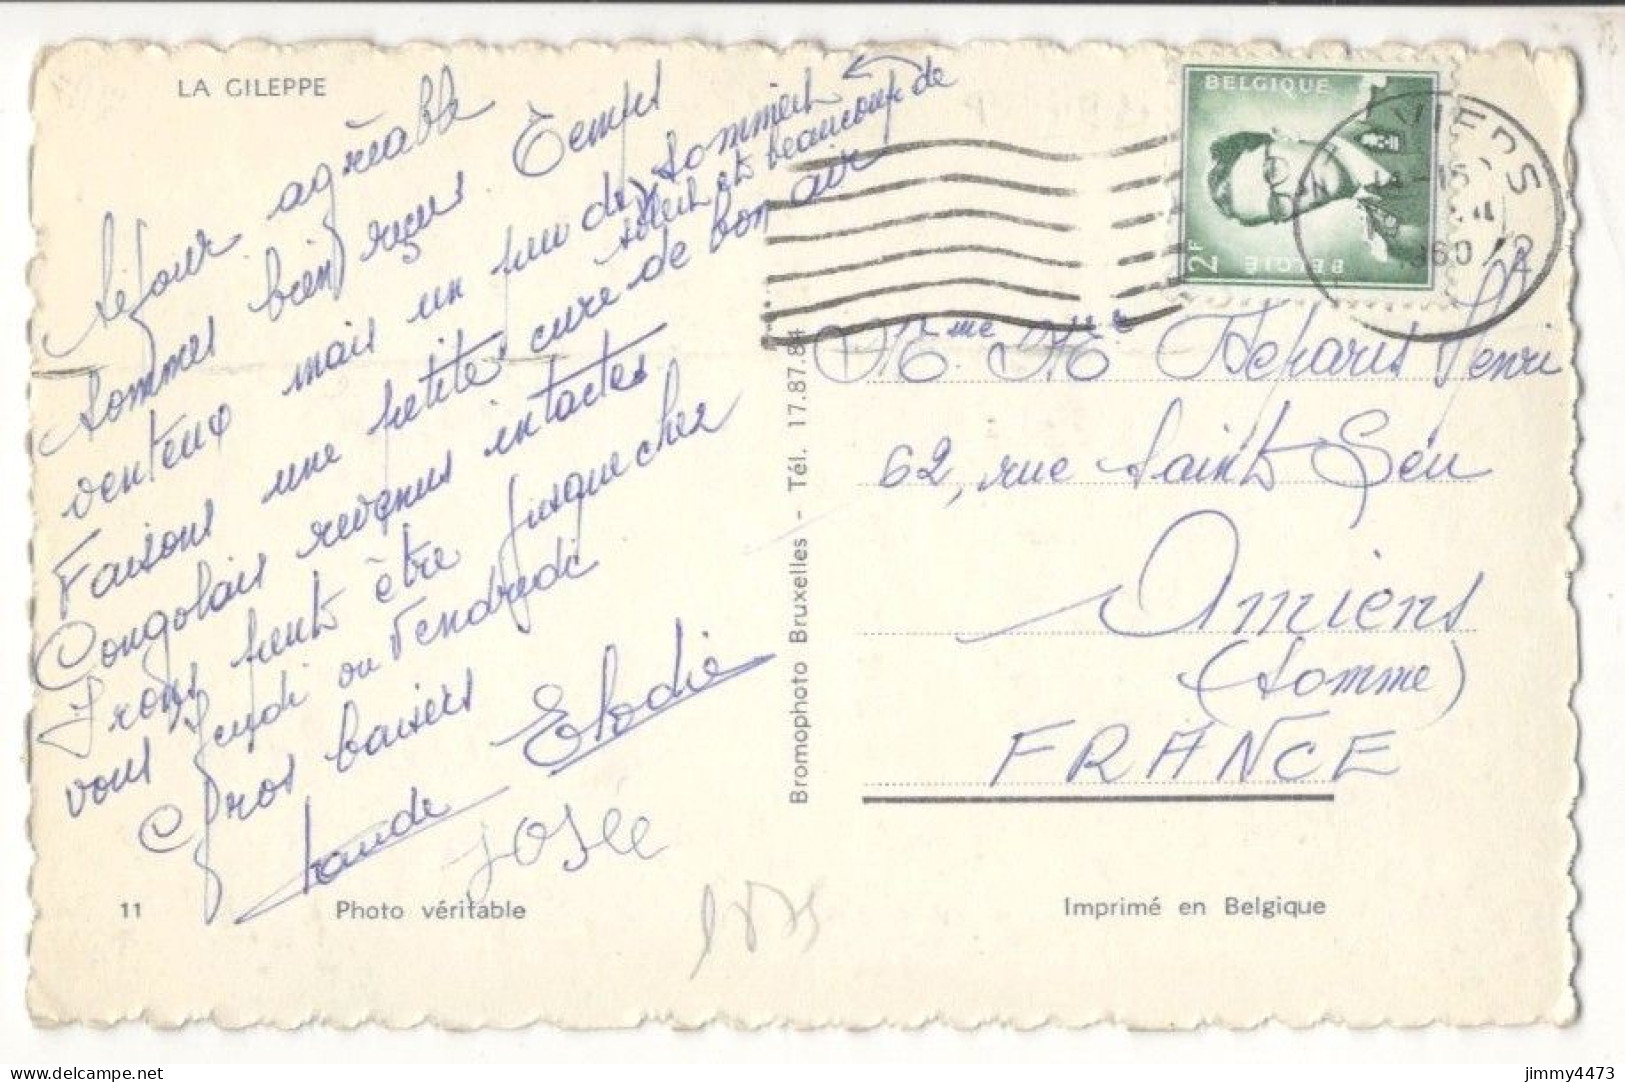 LA GILEPPE
Séjour agréable
Sommes bien reçus Temps
venteux mais un peu de
soleil et beaucoup de sommeil
Faisons une petite cure de bon air
Congolais revenus intactes
Irons peut être jusque chez
vous Jeudi ou Vendredi
Gros baisers
Elodie
Josée
11
Photo véritable
Bromophoto Bruxelles - Tél. 17.87.84
BELGIQUE
2F
BELGIE
VIERS
15
1960
Henri
62, rue Saint Leu
Amiens
(Somme)
FRANCE
Imprimé en Belgique
delcampe.net
jimmy4473